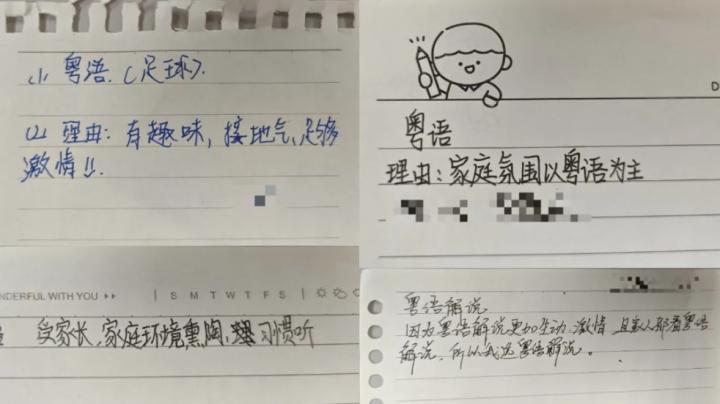 (1) 粤语.(足球).
(2) 理由: 有趣味, 接地气、足够
激情!!.
粤语
理由:家庭氛围以粤语为主
NDERFUL WITH YOU
S M T W T F S
受家长,家庭环境熏陶, 习惯听
粤语解说
因为粤语解说更加生动、激情 且家人都看粤语
解说, 所以我选粤语解说。